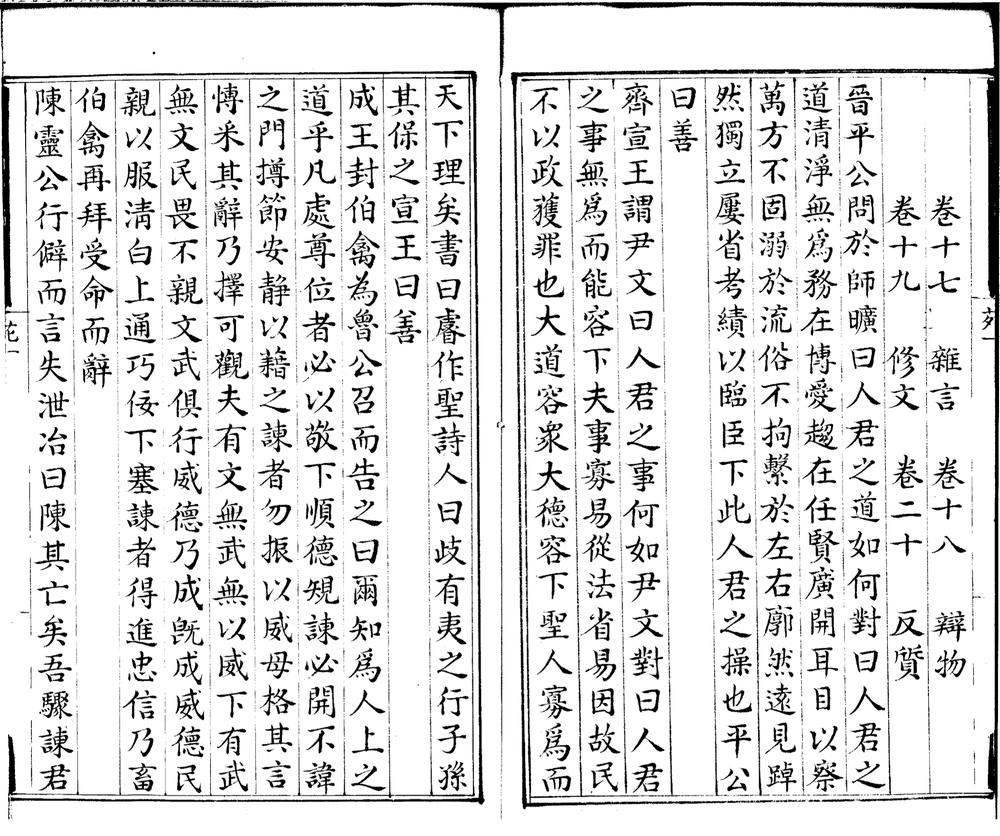 卷十七 雜言 卷十八 辯物
卷十九 修文 卷二十 反質
晉平公問於師曠曰人君之道如何對曰人君之
道清淨無爲務在博愛趨在任賢廣開耳目以察
萬方不固溺於流俗不拘繫於左右廓然遠見踔
然獨立屢省考績以臨臣下此人君之操也平公
曰善
齊宣王謂尹文曰人君之事何如尹文對曰人君
之事無爲而能容下夫事寡易從法省易因故民
不以政獲罪也大道容衆大德容下聖人寡爲而
天下理矣書曰睿作聖詩人曰歧有夷之行子孫
其保之宣王曰善
成王封伯禽為魯公召而告之曰爾知爲人上之
道乎凡處尊位者必以敬下順德規諫必開不諱
之門撙節安静以藉之諫者勿振以威毋格其言
慱采其辭乃擇可觀夫有文無武無以威下有武
無文民畏不親文武俱行威德乃成旣成威德民
親以服淸白上通巧佞下塞諫者得進忠信乃畜
伯禽再拜受命而辭
陳靈公行僻而言失泄冶曰陳其亡矣吾驟諫君